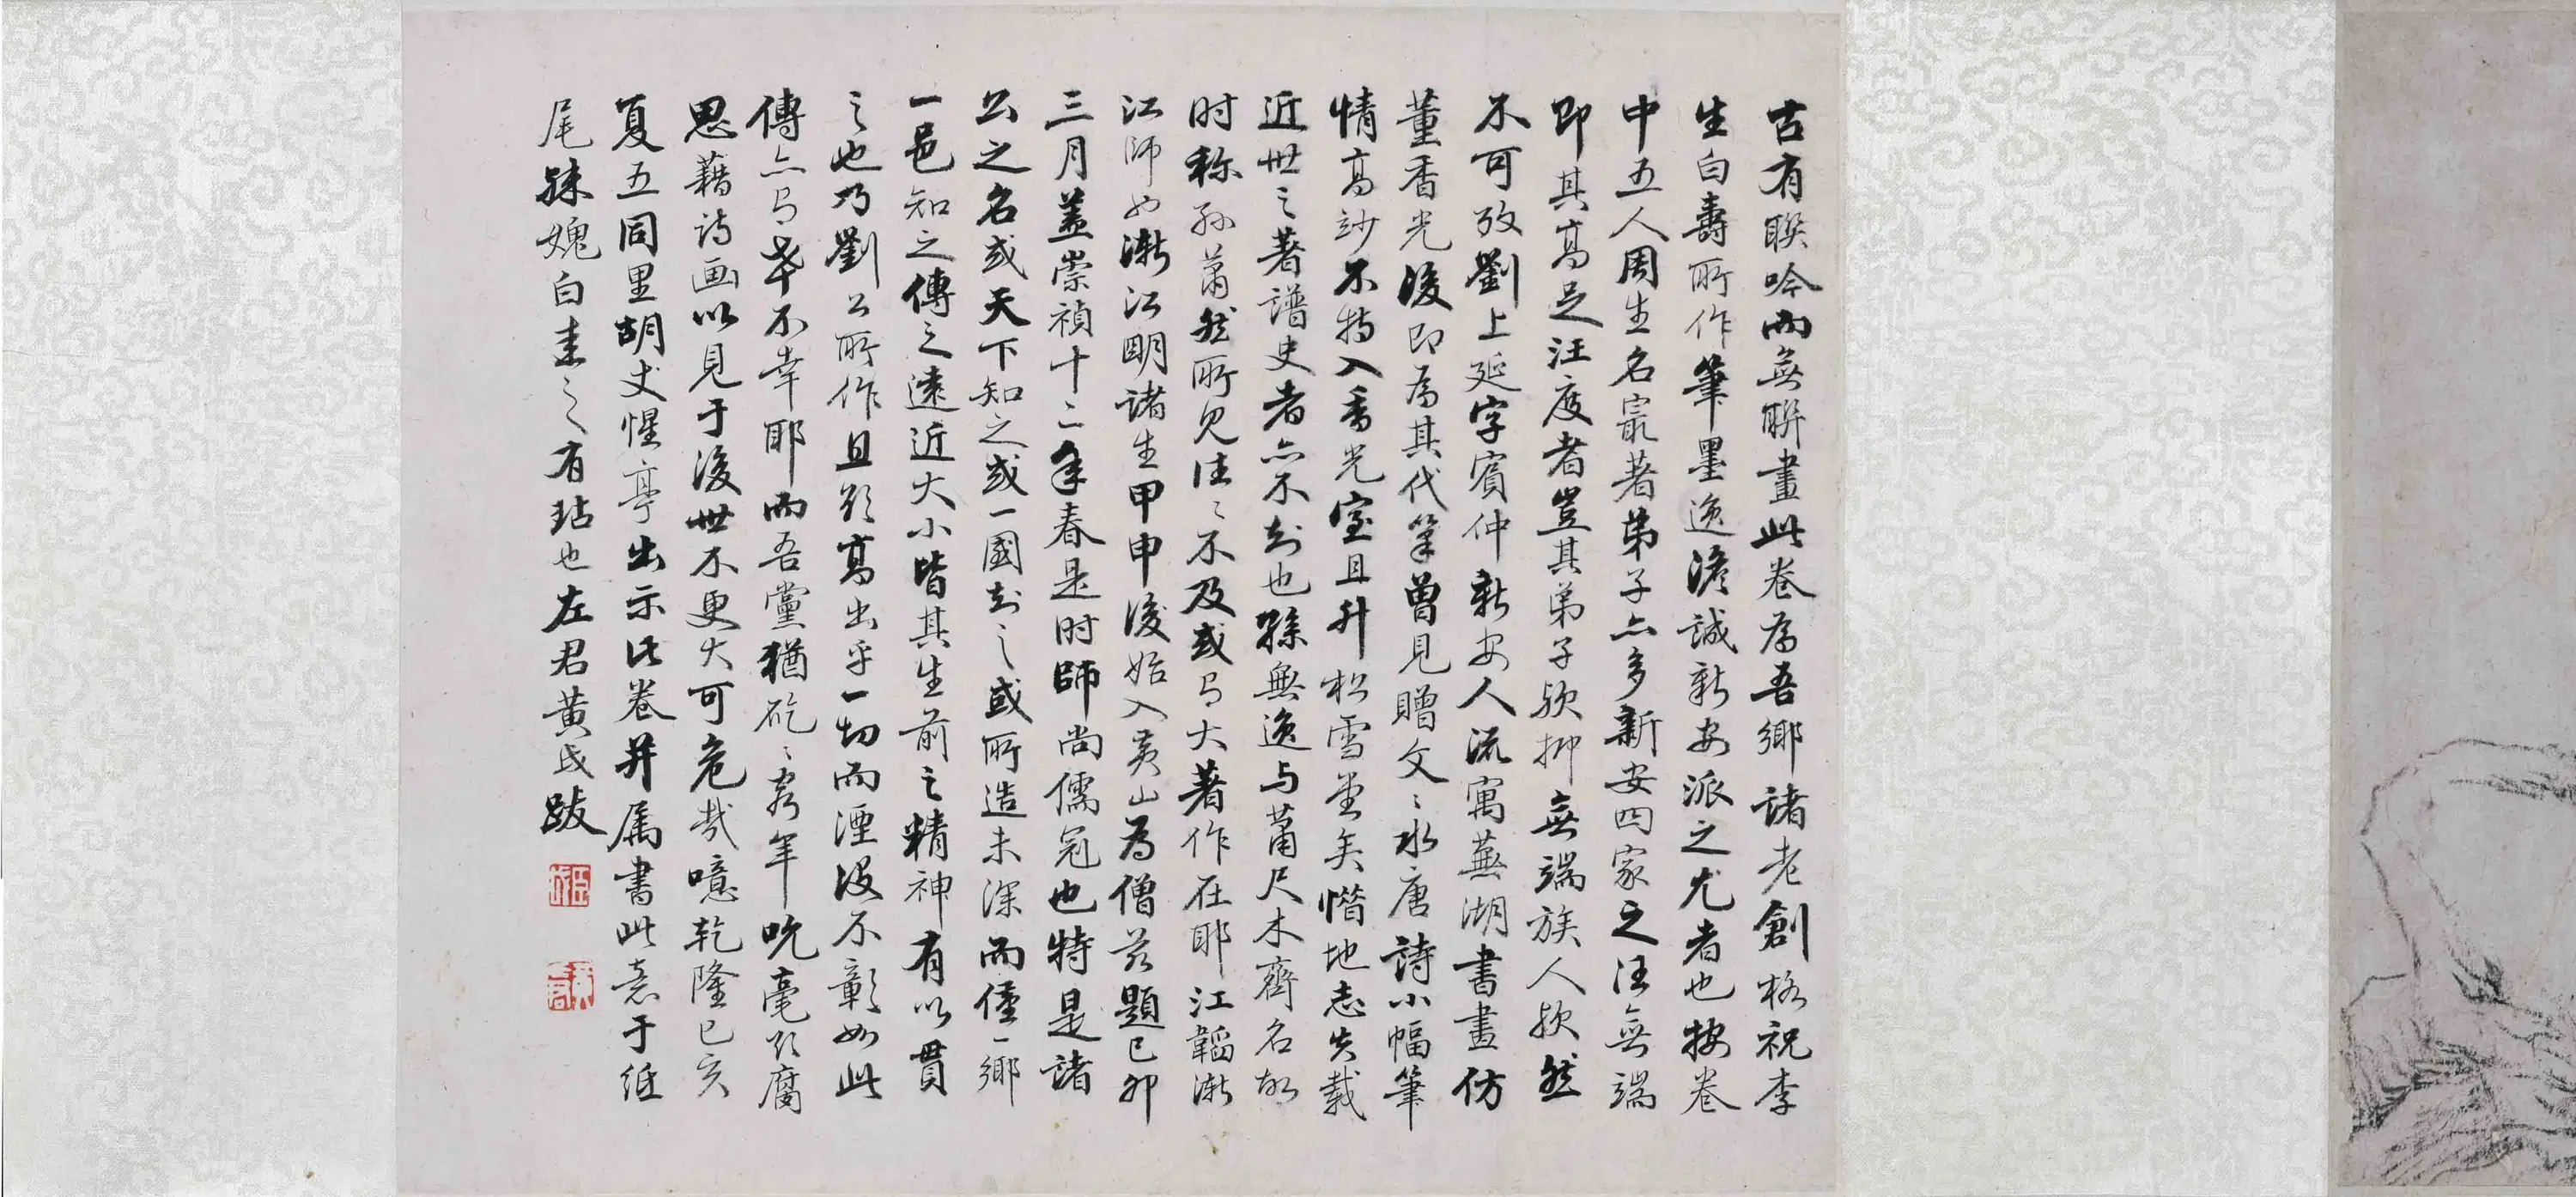 古有聨吟而無聨畫此卷為吾鄉諸老創格祝李
生白壽所作筆墨逸澹誠新安派之尤者也按卷
中五人周生名寂著弟子亦多新安四家之汪無端
即其高足汪度者豈其弟子欤抑無端族人欤然
不可攷劉上延字賓仲新安人流寓蕪湖書畫仿
董香光後即為其代筆曾見贈文文水唐詩小幅筆
情高妙不特入香光室且升松雪堂矣惜地志失載
近世之著譜史者亦不知也孫無逸与蕭尺木齊名故
时称孫蕭然所見往往不及或与大著作在耶江韜漸
江師也漸江明諸生甲申後始入黃山為僧兹題己卯
三月蓋崇禎十二年春是时師尚儒冠也特是諸
公之名或天下知之或一國知之或所造未深而僅一鄉
一邑知之傳之遠近大小皆其生前之精神有以貫
之也乃劉公所作且欲高出乎一切而湮没不彰如此
傳亦与幸不幸耶而吾黨猶矻矻窮年吮毫欲腐
思藉诗画以見于後世不更大可危哉噫乾隆己亥
夏五同里胡丈惺亭出示此卷并属書此意于紙
尾殊媿白圭之有玷也左君黃戉跋